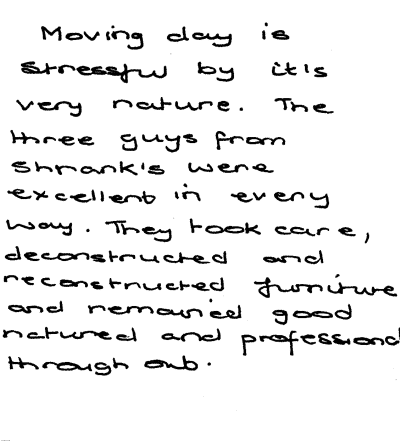 Moving day is
stressful by it's
very nature. The
three guys from
Shrank's were
excellent in every
way. They took care,
deconstructed and
reconstructed furniture
and remained good
natured and professional
through out.